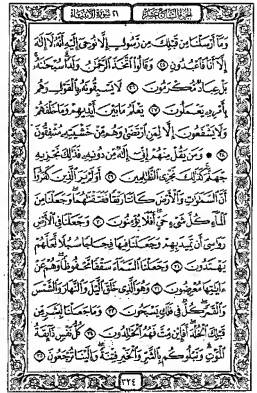 الجزء السابع عشر ٢١ سورة الأنبياء
وَمَا أَرْسَلْنَا مِن قَبْلِكَ مِن رَّسُولٍ إِلَّا نُوحِي إِلَيْهِ أَنَّهُ لَا إِلَهَ
إِلَّا أَنَا فَاعْبُدُونِ ٢٥ وَقَالُوا اتَّخَذَ الرَّحْمَنُ وَلَدًا سُبْحَانَهُ
بَلْ عِبَادٌ مُّكْرَمُونَ ٢٦ لَا يَسْبِقُونَهُ بِالْقَوْلِ وَهُم
بِأَمْرِهِ يَعْمَلُونَ ٢٧ يَعْلَمُ مَا بَيْنَ أَيْدِيهِمْ وَمَا خَلْفَهُمْ
وَلَا يَشْفَعُونَ إِلَّا لِمَنِ ارْتَضَى وَهُم مِّنْ خَشْيَتِهِ مُشْفِقُونَ
٢٨ وَمَن يَقُلْ مِنْهُمْ إِنِّي إِلَهٌ مِّن دُونِهِ فَذَلِكَ نَجْزِيهِ
جَهَنَّمَ كَذَلِكَ نَجْزِي الظَّالِمِينَ ٢٩ أَوَلَمْ يَرَ الَّذِينَ كَفَرُوا
أَنَّ السَّمَاوَاتِ وَالْأَرْضَ كَانَتَا رَتْقًا فَفَتَقْنَاهُمَا وَجَعَلْنَا مِنَ
الْمَاءِ كُلَّ شَيْءٍ حَيٍّ أَفَلَا يُؤْمِنُونَ ٣٠ وَجَعَلْنَا فِي الْأَرْضِ
رَوَاسِيَ أَن تَمِيدَ بِهِمْ وَجَعَلْنَا فِيهَا فِجَاجًا سُبُلًا لَّعَلَّهُمْ
يَهْتَدُونَ ٣١ وَجَعَلْنَا السَّمَاءَ سَقْفًا مَّحْفُوظًا وَهُمْ عَنْ
آيَاتِهَا مُعْرِضُونَ ٣٢ وَهُوَ الَّذِي خَلَقَ اللَّيْلَ وَالنَّهَارَ وَالشَّمْسَ
وَالْقَمَرَ كُلٌّ فِي فَلَكٍ يَسْبَحُونَ ٣٣ وَمَا جَعَلْنَا لِبَشَرٍ مِّن
قَبْلِكَ الْخُلْدَ أَفَإِن مِّتَّ فَهُمُ الْخَالِدُونَ ٣٤ كُلُّ نَفْسٍ ذَائِقَةُ
الْمَوْتِ وَنَبْلُوكُم بِالشَّرِّ وَالْخَيْرِ فِتْنَةً وَإِلَيْنَا تُرْجَعُونَ ٣٥
٣٢٤